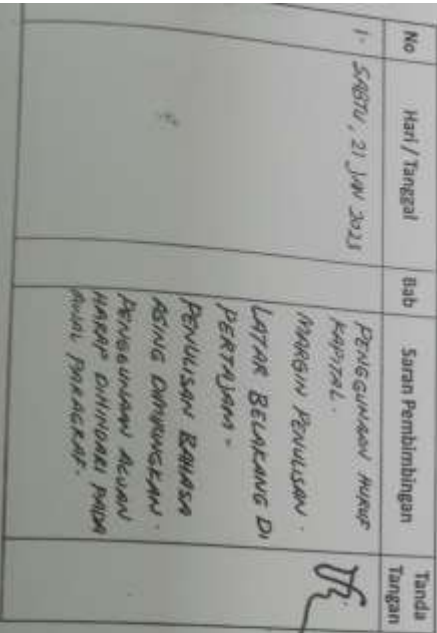 No
Hari / Tanggal
Bab
Saran Pembimbingan
Tanda
Tangan
1. SABTU, 21 JAN 2023
PENGGUNAAN HURUF
KAPITAL.
MARGIN PENULISAN.
LATAR BELAKANG DI
PERTAJAM.
PENULISAN BAHASA
ASING DIMIRINGKAN.
PENGGUNAAN ACUAN
HARAP DIHINDARI PADA
AWAL PARAGRAF.